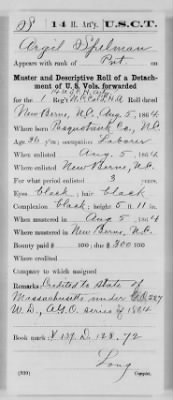 S | 14 H. Art'y. | U.S.C.T.
Argil Spelman
Appears with rank of Pvt on
Muster and Descriptive Roll of a Detach-
ment of U. S. Vols. forwarded
for the 1 Reg't N.C. Col. H A Roll dated
New Berne, N.C. Aug. 5, 1864
Where born Pasquotank Co., N.C.
Age 36 y'rs; occupation Laborer
When enlisted Aug. 5, 1864
Where enlisted New Berne, N.C.
For what period enlisted 3 years.
Eyes black; hair black
Complexion black; height 5 ft. 11 in.
When mustered in Aug 5, 1864
Where mustered in New Berne, N.C.
Bounty paid $ 100; due $ 300 100
Where credited
Company to which assigned
Remarks: Credited to state of
Massachusetts under G.O. 227
W.D., A.G.O. series of 1864
Book mark: X 139. D. 128. 72
Long
(339) Copyist.